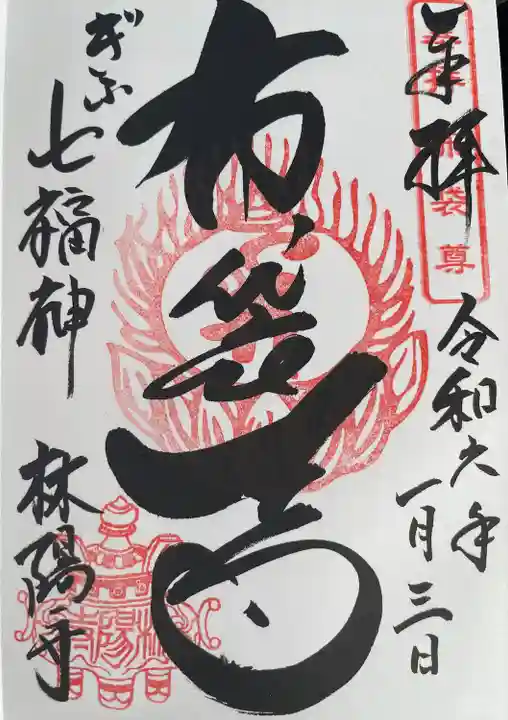 奉拝
令和六年
一月三日
布袋尊
ぎふ七福神
林陽寺
林陽寺